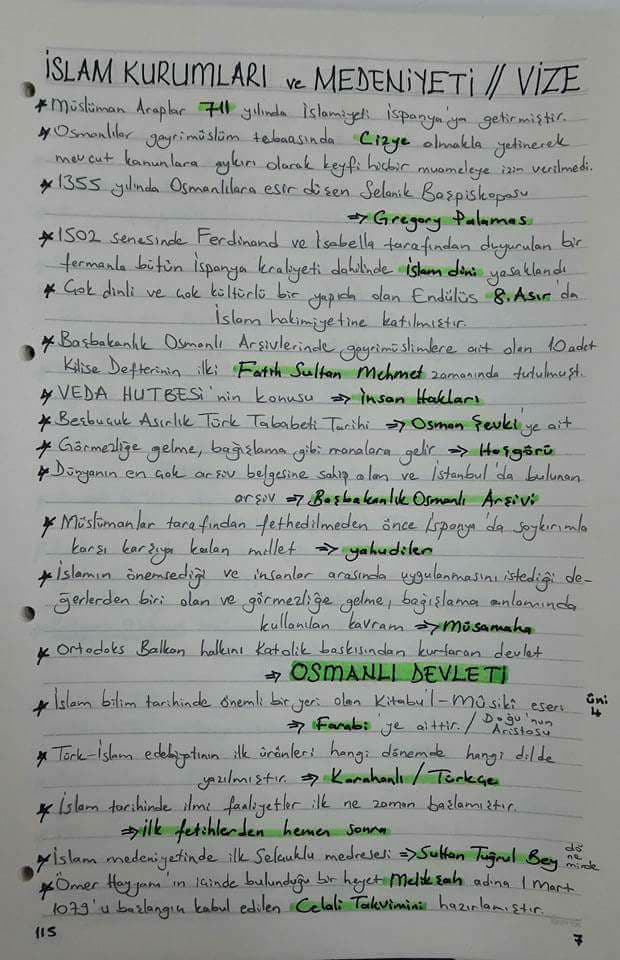 İSLAM KURUMLARI ve MEDENİYETİ // VİZE
* Müslüman Araplar 711 yılında İslamiyeti İspanya'ya getirmiştir.
* Osmanlılar gayrimüslüm tebaasında Cizye almakla yetinerek
mevcut kanunlara aykırı olarak keyfi hiçbir muameleye izin verilmedi.
* 1355 yılında Osmanlılara esir düşen Selanik Başpiskoposu
⇒ Gregory Palamas
* 1502 senesinde Ferdinand ve İsabella tarafından duyurulan bir
fermanla bütün İspanya kraliyeti dahilinde islam dini yasaklandı
* Çok dinli ve çok kültürlü bir yapıda olan Endülüs 8. Asır'da
İslam hakimiyetine katılmıştır.
* Başbakanlık Osmanlı Arşivlerinde gayrimüslimlere ait olan 10 adet
Kilise Defterinin ilki Fatih Sultan Mehmet zamanında tutulmuşt.
* VEDA HUTBESİ'nin konusu ⇒ İnsan Hakları
* Beşbuçuk Asırlık Türk Tababeti Tarihi ⇒ Osman Şevki'ye ait
* Görmezliğe gelme, bağışlama gibi manalara gelir ⇒ Hoşgörü
* Dünyanın en çok arşiv belgesine sahip olan ve İstanbul'da bulunan
arşiv ⇒ Başbakanlık Osmanlı Arşivi
* Müslümanlar tarafından fethedilmeden önce İspanya'da soykırımla
karşı karşıya kalan millet ⇒ yahudiler
* İslamın önemsediği ve insanlar arasında uygulanmasını istediği de-
ğerlerden biri olan ve görmezliğe gelme, bağışlama anlamında
kullanılan kavram ⇒ Müsamaha
* Ortodoks Balkan halkını Katolik baskısından kurtaran devlet
⇒ OSMANLI DEVLETİ
* İslam bilim tarihinde önemli bir yeri olan Kitabü'l-Mûsiki eseri üni 4
⇒ Farabi'ye aittir. / Doğu'nun Aristosu
* Türk-İslam edebiyatının ilk ürünleri hangi dönemde hangi dilde
yazılmıştır. ⇒ Karahanlı / Türkçe
* İslam tarihinde ilmi faaliyetler ilk ne zaman başlamıştır.
⇒ ilk fetihlerden hemen sonra
* İslam medeniyetinde ilk Selçuklu medresesi ⇒ Sultan Tuğrul Bey döneminde
* Ömer Hayyam'ın içinde bulunduğu bir heyet Melikşah adına 1 Mart
1079'u başlangıç kabul edilen Celali Takvimini hazırlamıştır.
115
7